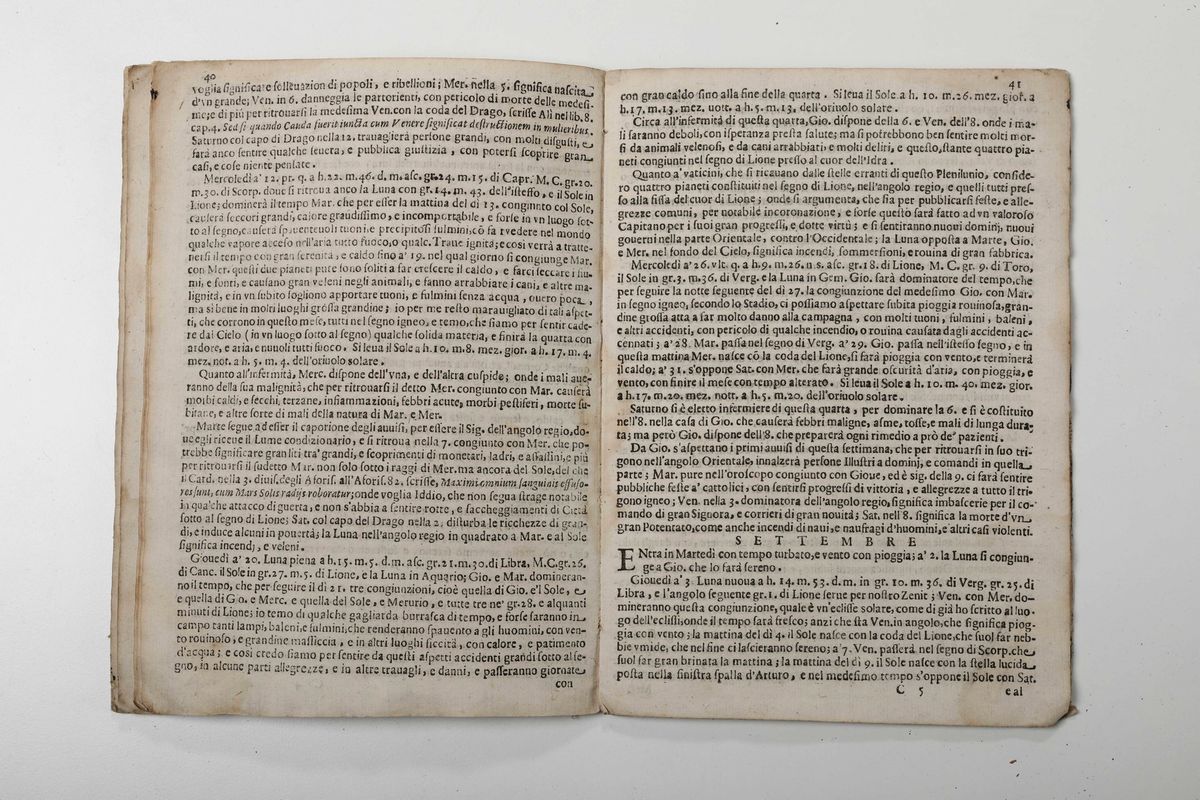 40
voglia significare solleuazion di popoli, e ribellioni; Mer. nella 5. significa nascita
d'vn grande; Ven. in 6. danneggia le partorienti, con pericolo di morte delle medesi-
me, e di più per ritrouarsi la medesima Ven. con la coda del Drago, scrisse Alì nel lib. 8.
cap. 4. Sed si quando Cauda fuerit iuncta cum Venere significat destructionem in mulieribus.
Saturno col capo di Drago nella 12. trauaglierà persone grandi, con molti disgusti, e
sarà anco sentire qualche seuera, e pubblica giustizia, con potersi scoprire gran
casi, e cose niente pensate.
Mercoledì a' 12. pr. q. a h. 22. m. 46. d. m. asc. gr. 24. m. 15. di Capr. M. C. gr. 20.
m. 30. di Scorp. doue si ritroua anco la Luna con gr. 14. m. 43. dell'istesso, e il Sole in
Lione; dominerà il tempo Mar. che per esser la mattina del dì 13. congiunto col Sole,
causerà seccori grandi, calore grandissimo, e incomportabile, e forse in vn luogo sot-
to al segno, causerà spauentuoli tuoni, e precipitosi fulmini, cō sa rvedere nel mondo
qualche vapore acceso nell'aria tutto fuoco, o qualc. Traue ignita; e così verrà a tratte-
nersi il tempo con gran serenità, e caldo sino a' 19. nel qual giorno si congiunge Mar.
con Mer. questi due pianeti pure sono soliti a far crescere il caldo, e farci seccare i fiu-
mi, e fonti, e causano gran veleni negli animali, e fanno arrabbiare i cani, e altre ma-
lignità, e in vn subito sogliono apportare tuoni, e fulmini senza acqua, ouero poca,
ma sì bene in molti luoghi grossa grandine; io per me resto marauigliato di tali aspet-
ti, che corrono in questo mese, tutti nel segno igneo, e temo, che siamo per sentir cade-
re dal Cielo (in vn luogo sotto al segno) qualche solida materia, e finirà la quarta con
ardore, e aria, e nuuoli tutti fuoco. Si leua il Sole a h. 10. m. 8. mez. gior. a h. 17. m. 4.
mez. not. a h. 5. m. 4. dell'oriuolo solare.
Quanto all'infermità, Merc. dispone dell'vna, e dell'altra cuspide; onde i mali aue-
ranno della sua malignità, che per ritrouarsi il detto Mer. congiunto con Mar. causerà
morbi caldi, e secchi, terzane, infiammazioni, febbri acute, morbi pestiferi, morte su-
bitane, e altre sorte di mali della natura di Mar. e Mer.
Marte segue ad esser il caporione degli auuisi, per essere il Sig. dell'angolo regio, do-
ue egli riceue il Lume condizionario, e si ritroua nella 7. congiunto con Mer. che po-
trebbe significare gran liti tra' grandi, e scoprimenti di monetari, ladri, e assassini, e più
per ritrouarsi il sudetto Mar. non solo sotto i raggi di Mer. ma ancora del Sole, del che
il Card. nella 3. diuis. degli Aforis. all'Aforis. 82. scrisse, Maximi omnium sanguinis effuso-
res sunt, cum Mars Solis radijs roboratur; onde voglia Iddio, che non segua strage notabile
in qualche attacco di guerra, e non s'abbia a sentire rotte, e saccheggiamenti di Città
sotto al segno di Lione; Sat. col capo del Drago nella 2. disturba le ricchezze di gran-
di, e induce alcuni in pouertà; la Luna nell'angolo regio in quadrato a Mar. e al Sole
significa incendj, e veleni.
Giouedì a' 20. Luna piena a h. 15. m. 5. d. m. asc. gr. 21. m. 30. di Libra, M. C. gr. 26.
di Canc. il Sole in gr. 27. m. 5. di Lione, e la Luna in Aquario; Gio. e Mar. domineran-
no il tempo, che per seguire il dì 21. tre congiunzioni, cioè quella di Gio. e'l Sole, e
e quella di Gio. e Merc. e quella del Sole, e Merurio, e tutte tre ne' gr. 28. e alquanti
minuti di Lione; io temo di qualche gagliarda burrasca di tempo, e forse saranno in
campo tanti lampi, baleni, e fulmini, che renderanno spauento a gli huomini, con ven-
to rouinoso, e grandine massiccia, e in altri luoghi siccità, con calore, e patimento
d'acqua; e così credo siamo per sentire da questi aspetti accidenti grandi sotto al se-
gno, in alcune parti allegrezze, e in altre trauagli, e danni, e passeranno giornate
con
41
con gran caldo sino alla fine della quarta. Si leua il Sole a h. 10. m. 26. mez. gior. a
h. 17. m. 13. mez. nott. a h. 5. m. 13. dell'oriuolo solare.
Circa all'infermità di questa quarta, Gio. dispone della 6. e Ven. dell'8. onde i ma-
li saranno deboli, con isperanza presta salute; ma si potrebbono ben sentire molti mor-
si da animali velenosi, e da cani arrabbiati; e molti deliri, e questo, stante quattro pia-
neti congiunti nel segno di Lione presso al cuor dell'Idra.
Quanto a' vaticini, che si ricauano dalle stelle erranti di questo Plenilunio, conside-
ro quattro pianeti constituiti nel segno di Lione, nell'angolo regio, e quelli tutti pres-
so alla fissa del cuor di Lione; onde si argumenta, che sia per pubblicarsi feste, e alle-
grezze comuni, per notabile incoronazione, e forse questo sarà fatto ad vn valoroso
Capitano per i suoi gran progressi, e dotte virtù; e si sentiranno nuoui dominj, nuoui
gouerni nella parte Orientale, contro l'Occidentale; la Luna opposta a Marte, Gio.
e Mer. nel fondo del Cielo, significa incendi, sommersioni, e rouina di gran fabbrica.
Mercoledì a' 26. vlt. q. a h. 9. m. 26. n. s. asc. gr. 18. di Lione, M. C. gr. 9. di Toro,
il Sole in gr. 3. m. 36. di Verg. e la Luna in Gem. Gio. sarà dominatore del tempo, che
per seguire la notte seguente del dì 27. la congiunzione del medesimo Gio. con Mar.
in segno igneo, secondo lo Stadio, ci possiamo aspettare subita pioggia rouinosa, gran-
dine grossa atta a far molto danno alla campagna, con molti tuoni, fulmini, baleni,
e altri accidenti, con pericolo di qualche incendio, o rouina causata dagli accidenti ac-
cennati; a' 28. Mar. passa nel segno di Verg. a' 29. Gio. passa nell'istesso segno, e in
questa mattina Mer. nasce cō la coda del Lione, si farà pioggia con vento, e terminerà
il caldo; a' 31. s'oppone Sat. con Mer. che farà grande oscurità d'aria, con pioggia, e
vento, con finire il mese con tempo alterato. Si leua il Sole a h. 10. m. 40. mez. gior.
a h. 17. m. 20. mez. nott. a h. 5. m. 20. dell'oriuolo solare.
Saturno si è eletto infermiere di questa quarta, per dominare la 6. e si è costituito
nell'8. nella casa di Gio. che causerà febbri maligne, asme, tosse, e mali di lunga dura-
ta; ma però Gio. dispone dell'8. che preparerà ogni rimedio a prò de' pazienti.
Da Gio. s'aspettano i primi auuisi di questa settimana, che per ritrouarsi in suo tri-
gono nell'angolo Orientale, innalzerà persone Illustri a dominj, e comandi in quella
parte; Mar. pure nell'oroscopo congiunto con Gioue, ed è sig. della 9. ci farà sentire
pubbliche feste a' cattolici, con sentirsi progressi di vittoria, e allegrezze a tutto il tri-
gono igneo; Ven. nella 3. dominatora dell'angolo regio, significa imbascerie per il co-
mando di gran Signora, e corrieri di gran nouità; Sat. nell'8. significa la morte d'vn
gran Potentato, come anche incendi di naui, e naufragi d'huomini, e altri casi violenti.
SETTEMBRE
ENtra in Martedì con tempo turbato, e vento con pioggia; a' 2. la Luna si congiun-
ge a Gio. che lo farà sereno.
Giouedì a' 3. Luna nuoua a h. 14. m. 53. d. m. in gr. 10. m. 36. di Verg. gr. 25. di
Libra, e l'angolo seguente gr. 1. di Lione serue per nostro Zenit; Ven. con Mer. do-
mineranno questa congiunzione, quale è vn'eclisse solare, come di già ho scritto al luo-
go dell'eclissi, onde il tempo sarà fresco; anzi che sta Ven. in angolo, che significa piog-
gia con vento; la mattina del dì 4. il Sole nasce con la coda del Lione, che suol far neb-
bie vmide, che nel fine ci lascieranno sereno; a' 7. Ven. passerà nel segno di Scorp. che
suol far gran brinata la mattina; la mattina del dì 9. il Sole nasce con la stella lucida
posta nella sinistra spalla d'Arturo, e nel medesimo tempo s'oppone il Sole con Sat.
C 5 e al